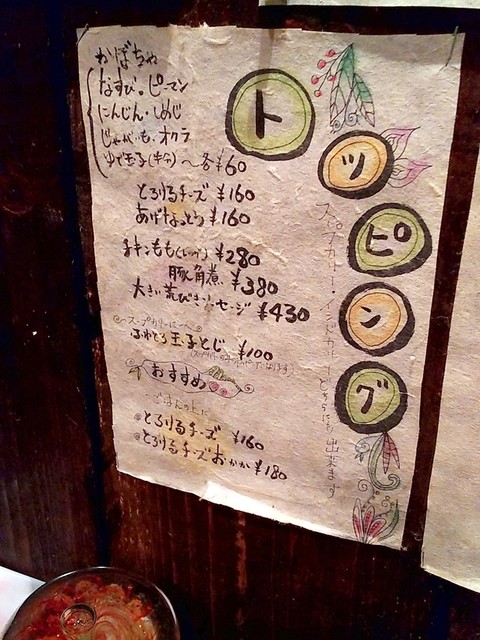 トッピング
スープカリー・インドカリーどちらにも出来ます
かぼちゃ
なすび。ピーマン
にんじん・しめじ
じゃがいも、オクラ
ゆで玉子(半分)〜各¥60
とろけるチーズ ¥160
あげなっとう ¥160
チキンもも(レッグ) ¥280
豚角煮 ¥380
大きい荒びきソーセージ ¥430
スープカリーに
ふわとろ玉子とじ ¥100
おすすめ
ごはんの上に
とろけるチーズ ¥160
とろけるチーズおかか ¥180